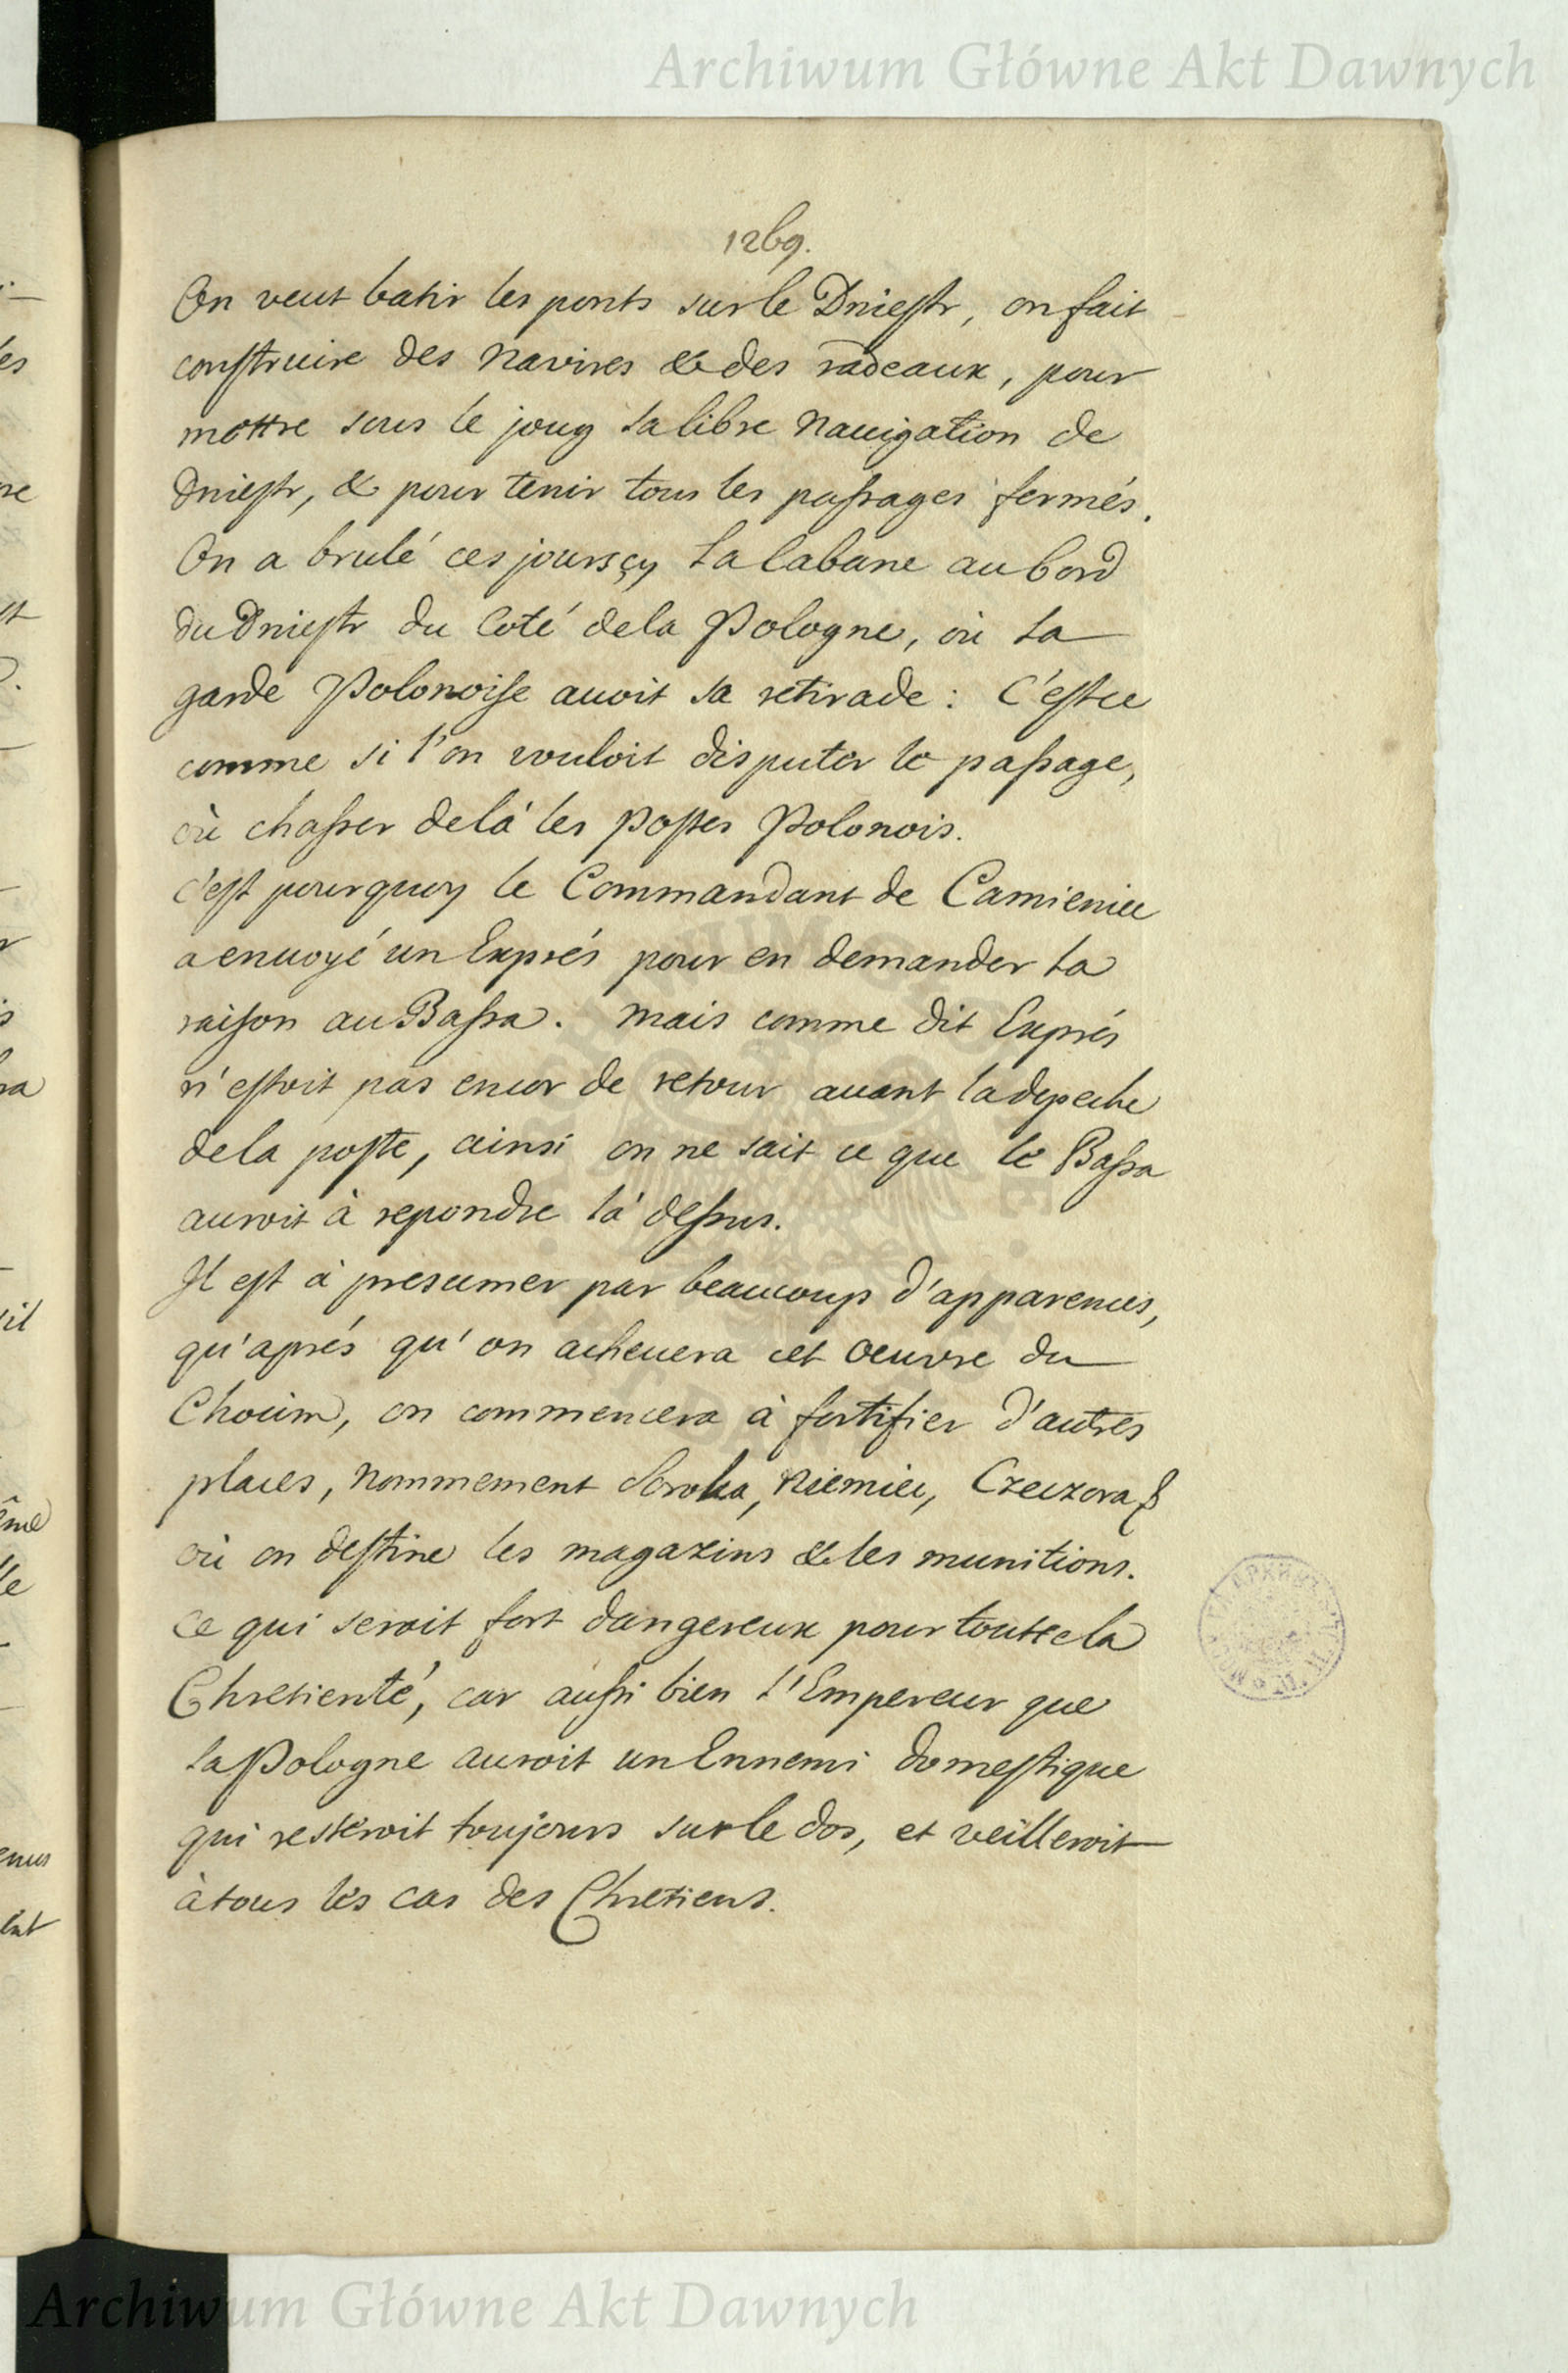 Archiwum Główne Akt Dawnych
1269.
On veut batir les ponts sur le Dniestr, on fait
construire des Navires & des radeaux, pour
mettre sous le joug la libre Nauigation de
Dniestr, & pour tenir tous les passages fermés.
On a brulé ces jours çy la Cabane au bord
du Dniestr du Coté de la Pologne, où la
garde Polonoise auoit sa retirade: C'est ce
comme si l'on vouloit disputer le passage,
où chasser delà les Postes Polonois.
c'est pourquoy le Commandant de Camieniec
a enuoyé un Exprés pour en demander la
raison au Bassa. Mais comme dit Exprés
n'estoit pas encor de retour auant la depeche
de la poste, ainsi on ne sait ce que le Bassa
auroit à repondre là dessus.
Il est à presumer par beaucoup d'apparences,
qu'aprés qu'on acheuera cet Oeuvre du
Chocim, on commencera à fortifier d'autres
places, Nommement Soroka, Niemiec, Czeczora &
où on destine les magazins & les munitions.
Ce qui seroit fort dangereux pour toute la
Chretienté, car aussi bien l'Empereur que
la Pologne auroit un Ennemi domestique
qui resteroit toujours sur le dos, et veilleroit
à tous les cas des Chretiens.
Archiwum Główne Akt Dawnych